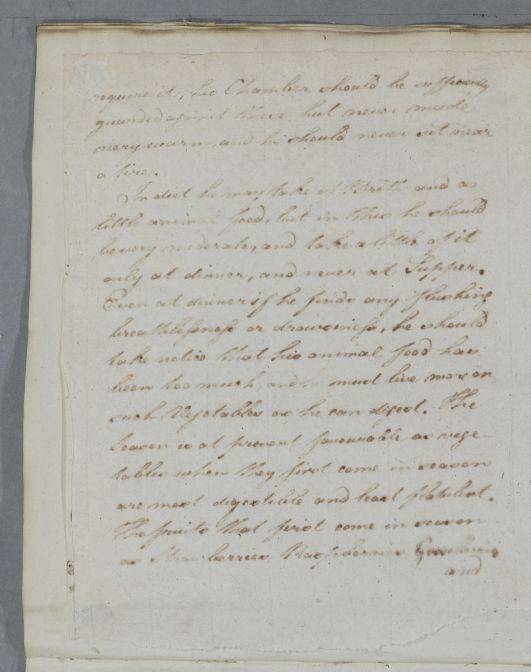 require it, his Chamber should be sufficiently
guarded against these but never made
very warm, and he should never sit near
a fire.
In diet he may take of Broth and a
little animal food, but in this he should
be very moderate, and take a little of it
only at dinner, and never at Supper.
Even at dinner if he finds any flushing
breathlessness or drowsiness, he should
take notice that his animal food has
been too much and he must live more on
such Vegetables as he can digest. The
Season is at present favourable as vege
tables when they first come in season
are most digestible and least flatulent.
The fruits that first come in season
as Strawberries Raspberries Gooseberries
and